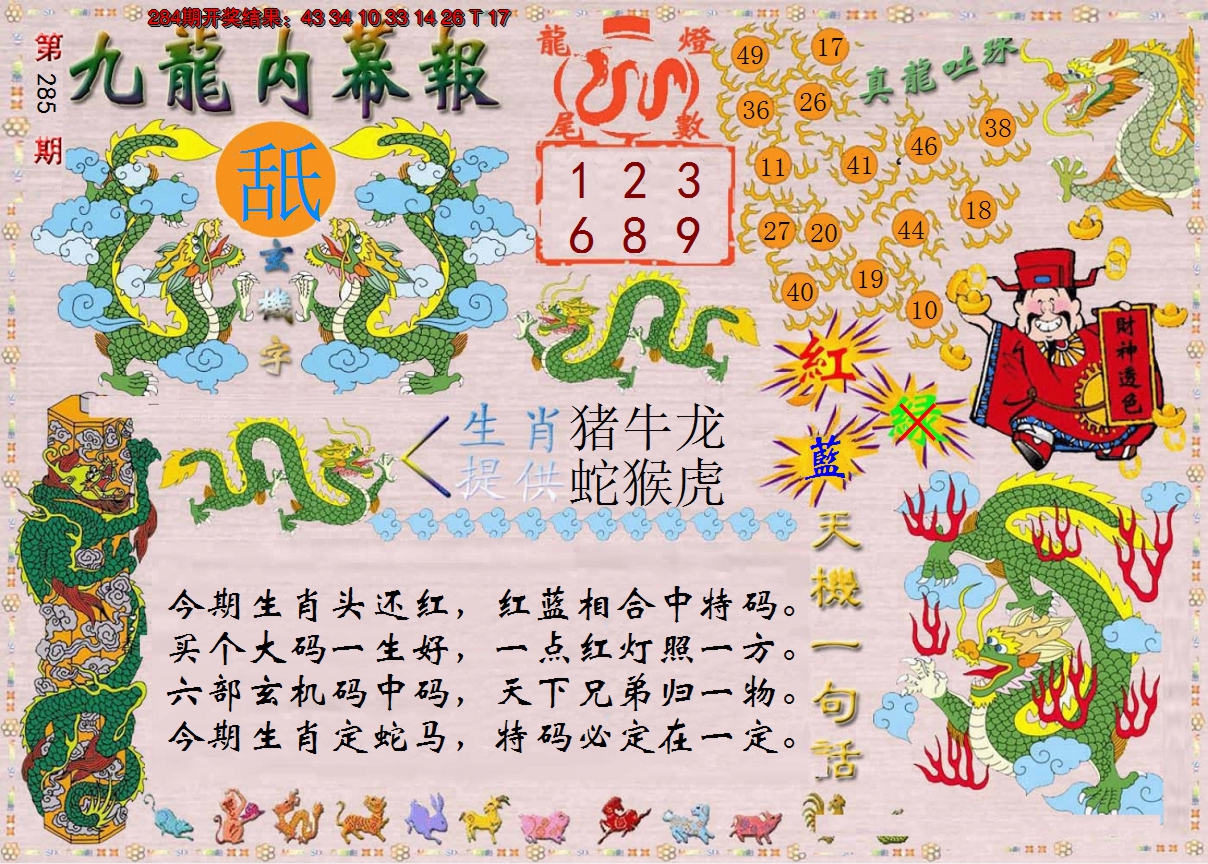 284期开奖结果：43 34 10 33 14 26 T 17
第285期
九龍内幕報
舐
玄機字
龍燈尾數
1 2 3
6 8 9
真龍吐珠
49 17
36 26
11 41 46 38
27 20 44 18
40 19 10
財神透色
紅
绿
藍
生肖提供
猪牛龙
蛇猴虎
天機一句話
今期生肖头还红，红蓝相合中特码。
买个大码一生好，一点红灯照一方。
六部玄机码中码，天下兄弟归一物。
今期生肖定蛇马，特码必定在一定。